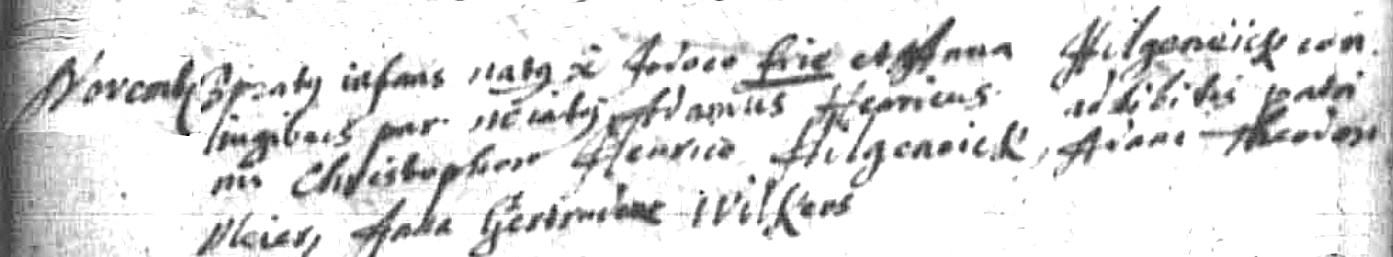 Novemb 3 bptatg infans natg e Jodoco frie et Anna Hilgeneick con
iugibus par. nciatg Adamus Henricus adhibitis patri
nis Christophoro Henrico Hilgeneick, Adamo Theodoro
Meier, Anna Gertrudene Wilkens